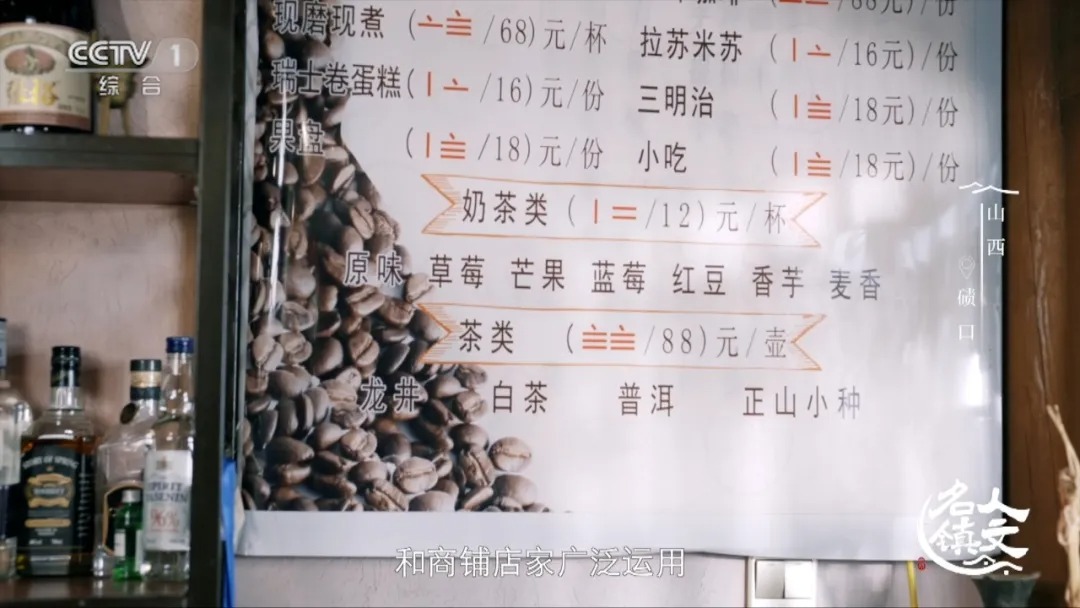 CCTV 1
综合
现磨现煮 (〦〨/68)元/杯 拉苏米苏 (〡〦/16元)/份
瑞士卷蛋糕(〡〦/16)元/份 三明治 (〡〨/18元)/份
果盘 (〡〨/18)元/份 小吃 (〡〨/18元)/份
奶茶类 (〡二/12)元/杯
原味 草莓 芒果 蓝莓 红豆 香芋 麦香
茶类 (〨〨/88)元/壶
龙井 白茶 普洱 正山小种
山西
碛口
人文
名镇
和商铺店家广泛运用